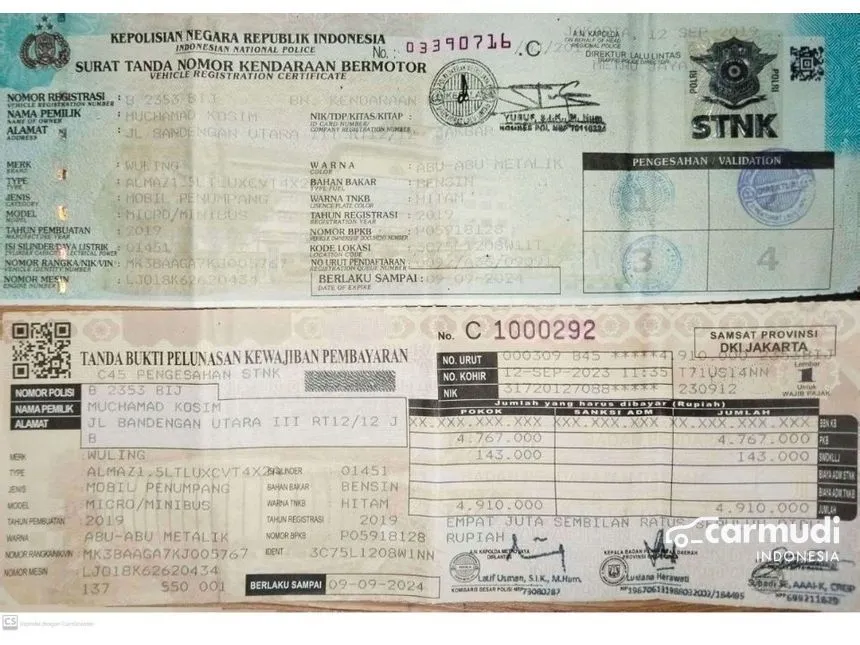 KEPOLISIAN NEGARA REPUBLIK INDONESIA
INDONESIAN NATIONAL POLICE
SURAT TANDA NOMOR KENDARAAN BERMOTOR
VEHICLE REGISTRATION CERTIFICATE
No. : 03390716 .C
A.N. KAPOLDA
ON BEHALF OF HEAD
REGIONAL POLICE
DIREKTUR LALU LINTAS
TRAFFIC POLICE DIRECTOR
METRO JAYA
12 SEP 2019
YUSUF, S.I.K., M. Hum
POLRI
POLRI
STNK
NOMOR REGISTRASI : B 2353 BIJ
VEHICLE REGISTRATION NUMBER
NAMA PEMILIK : MUCHAMAD KOSIM
NAME OF OWNER
ALAMAT : JL BANDENGAN UTARA III RT12/12 J
ADDRESS
NIK/TDP/KITAS/KITAP :
ID CARD NUMBER/
COMPANY REGISTRATION NUMBER
MERK : WULING
BRAND
TYPE : ALMAZ1.5LTLUXCVT4X2
TYPE
JENIS : MOBIL PENUMPANG
CATEGORY
MODEL : MICRO/MINIBUS
MODEL
TAHUN PEMBUATAN : 2019
MANUFACTURE YEAR
ISI SILINDER/DAYA LISTRIK : 01451
CYLINDER CAPACITY/ELECTRICAL POWER
NOMOR RANGKA/NIK/VIN : MK3BAAGA7KJ005767
VEHICLE IDENTITY NUMBER
NOMOR MESIN : LJ018K62620434
ENGINE NUMBER
WARNA : ABU-ABU METALIK
COLOR
BAHAN BAKAR : BENSIN
TYPE FUEL
WARNA TNKB : HITAM
LISENCE PLATE COLOR
TAHUN REGISTRASI : 2019
REGISTRATION YEAR
NOMOR BPKB : P05918128
KODE LOKASI : 3C75L1208W1NN
LOCATION CODE
NO URUT PENDAFTARAN
REGISTRATION QUEUE NUMBER
BERLAKU SAMPAI : 09-09-2024
DATE OF EXPIRE
PENGESAHAN / VALIDATION
1
3
4
TANDA BUKTI PELUNASAN KEWAJIBAN PEMBAYARAN
C45 PENGESAHAN STNK
No. C 1000292
SAMSAT PROVINSI
DKI JAKARTA
Lembar
1
Untuk
WAJIB PAJAK
NO. URUT 000309 845 *****4,910,
NO. KOHIR 12-SEP-2023 11:35 T71US14NN
NIK 31720127088***** 230912
NOMOR POLISI B 2353 BIJ
NAMA PEMILIK MUCHAMAD KOSIM
ALAMAT JL BANDENGAN UTARA III RT12/12 J
B
Jumlah yang harus dibayar (Rupiah)
POKOK SANKSI ADM JUMLAH
XX.XXX.XXX.XXX XX.XXX.XXX.XXX XX.XXX.XXX.XXX BBN KB
4.767.000 4.767.000 PKB
143.000 143.000 SWDKLLJ
BIAYA ADM STNK
BIAYA ADM TNKB
4.910.000 4.910.000 JUMLAH
EMPAT JUTA SEMBILAN RATUS SEPULUH RIBU
RUPIAH
MERK WULING
TYPE ALMAZ1.5LTLUXCVT4X2
JENIS MOBIL PENUMPANG
MODEL MICRO/MINIBUS
TAHUN PEMBUATAN 2019
WARNA ABU-ABU METALIK
NOMOR RANGKA/NIK/VIN MK3BAAGA7KJ005767
NOMOR MESIN LJ018K62620434
137 550 001
ISI SILINDER 01451
BAHAN BAKAR BENSIN
WARNA TNKB HITAM
TAHUN REGISTRASI 2019
NOMOR BPKB P05918128
IDENT 3C75L1208W1NN
BERLAKU SAMPAI 09-09-2024
A.N. KAPOLDA METRO JAYA
DIRLANTAS
Latif Usman, S.I.K., M.Hum.
KOMISARIS BESAR POLISI NRP 73080287
KEPALA BADAN PENDAPATAN DAERAH
Lusiana Herawati
carmudi
INDONESIA
CS